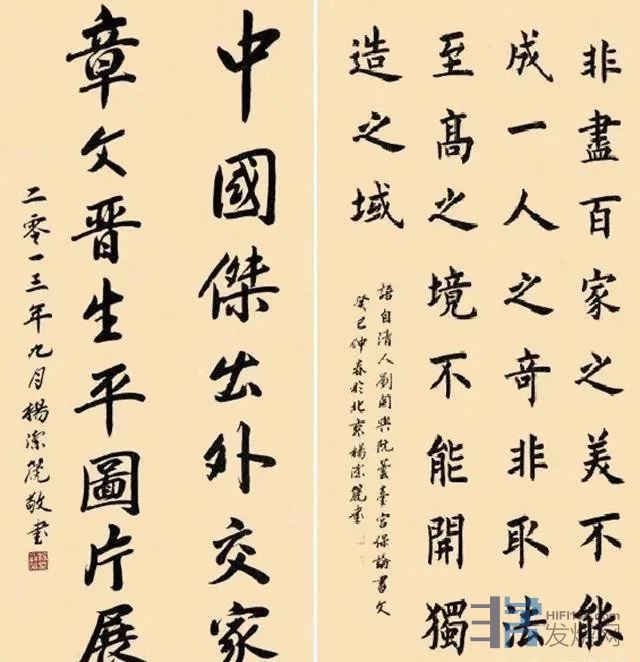 中國傑出外交家
章文晋生平圖片展
二零一三年九月楊潔篪敬書
非盡百家之美不能
成一人之奇非取法
至高之境不能開獨
造之域
語自清人劉開與阮蕓臺宮保論書文
癸巳仲春於北京楊潔篪書
发烧网